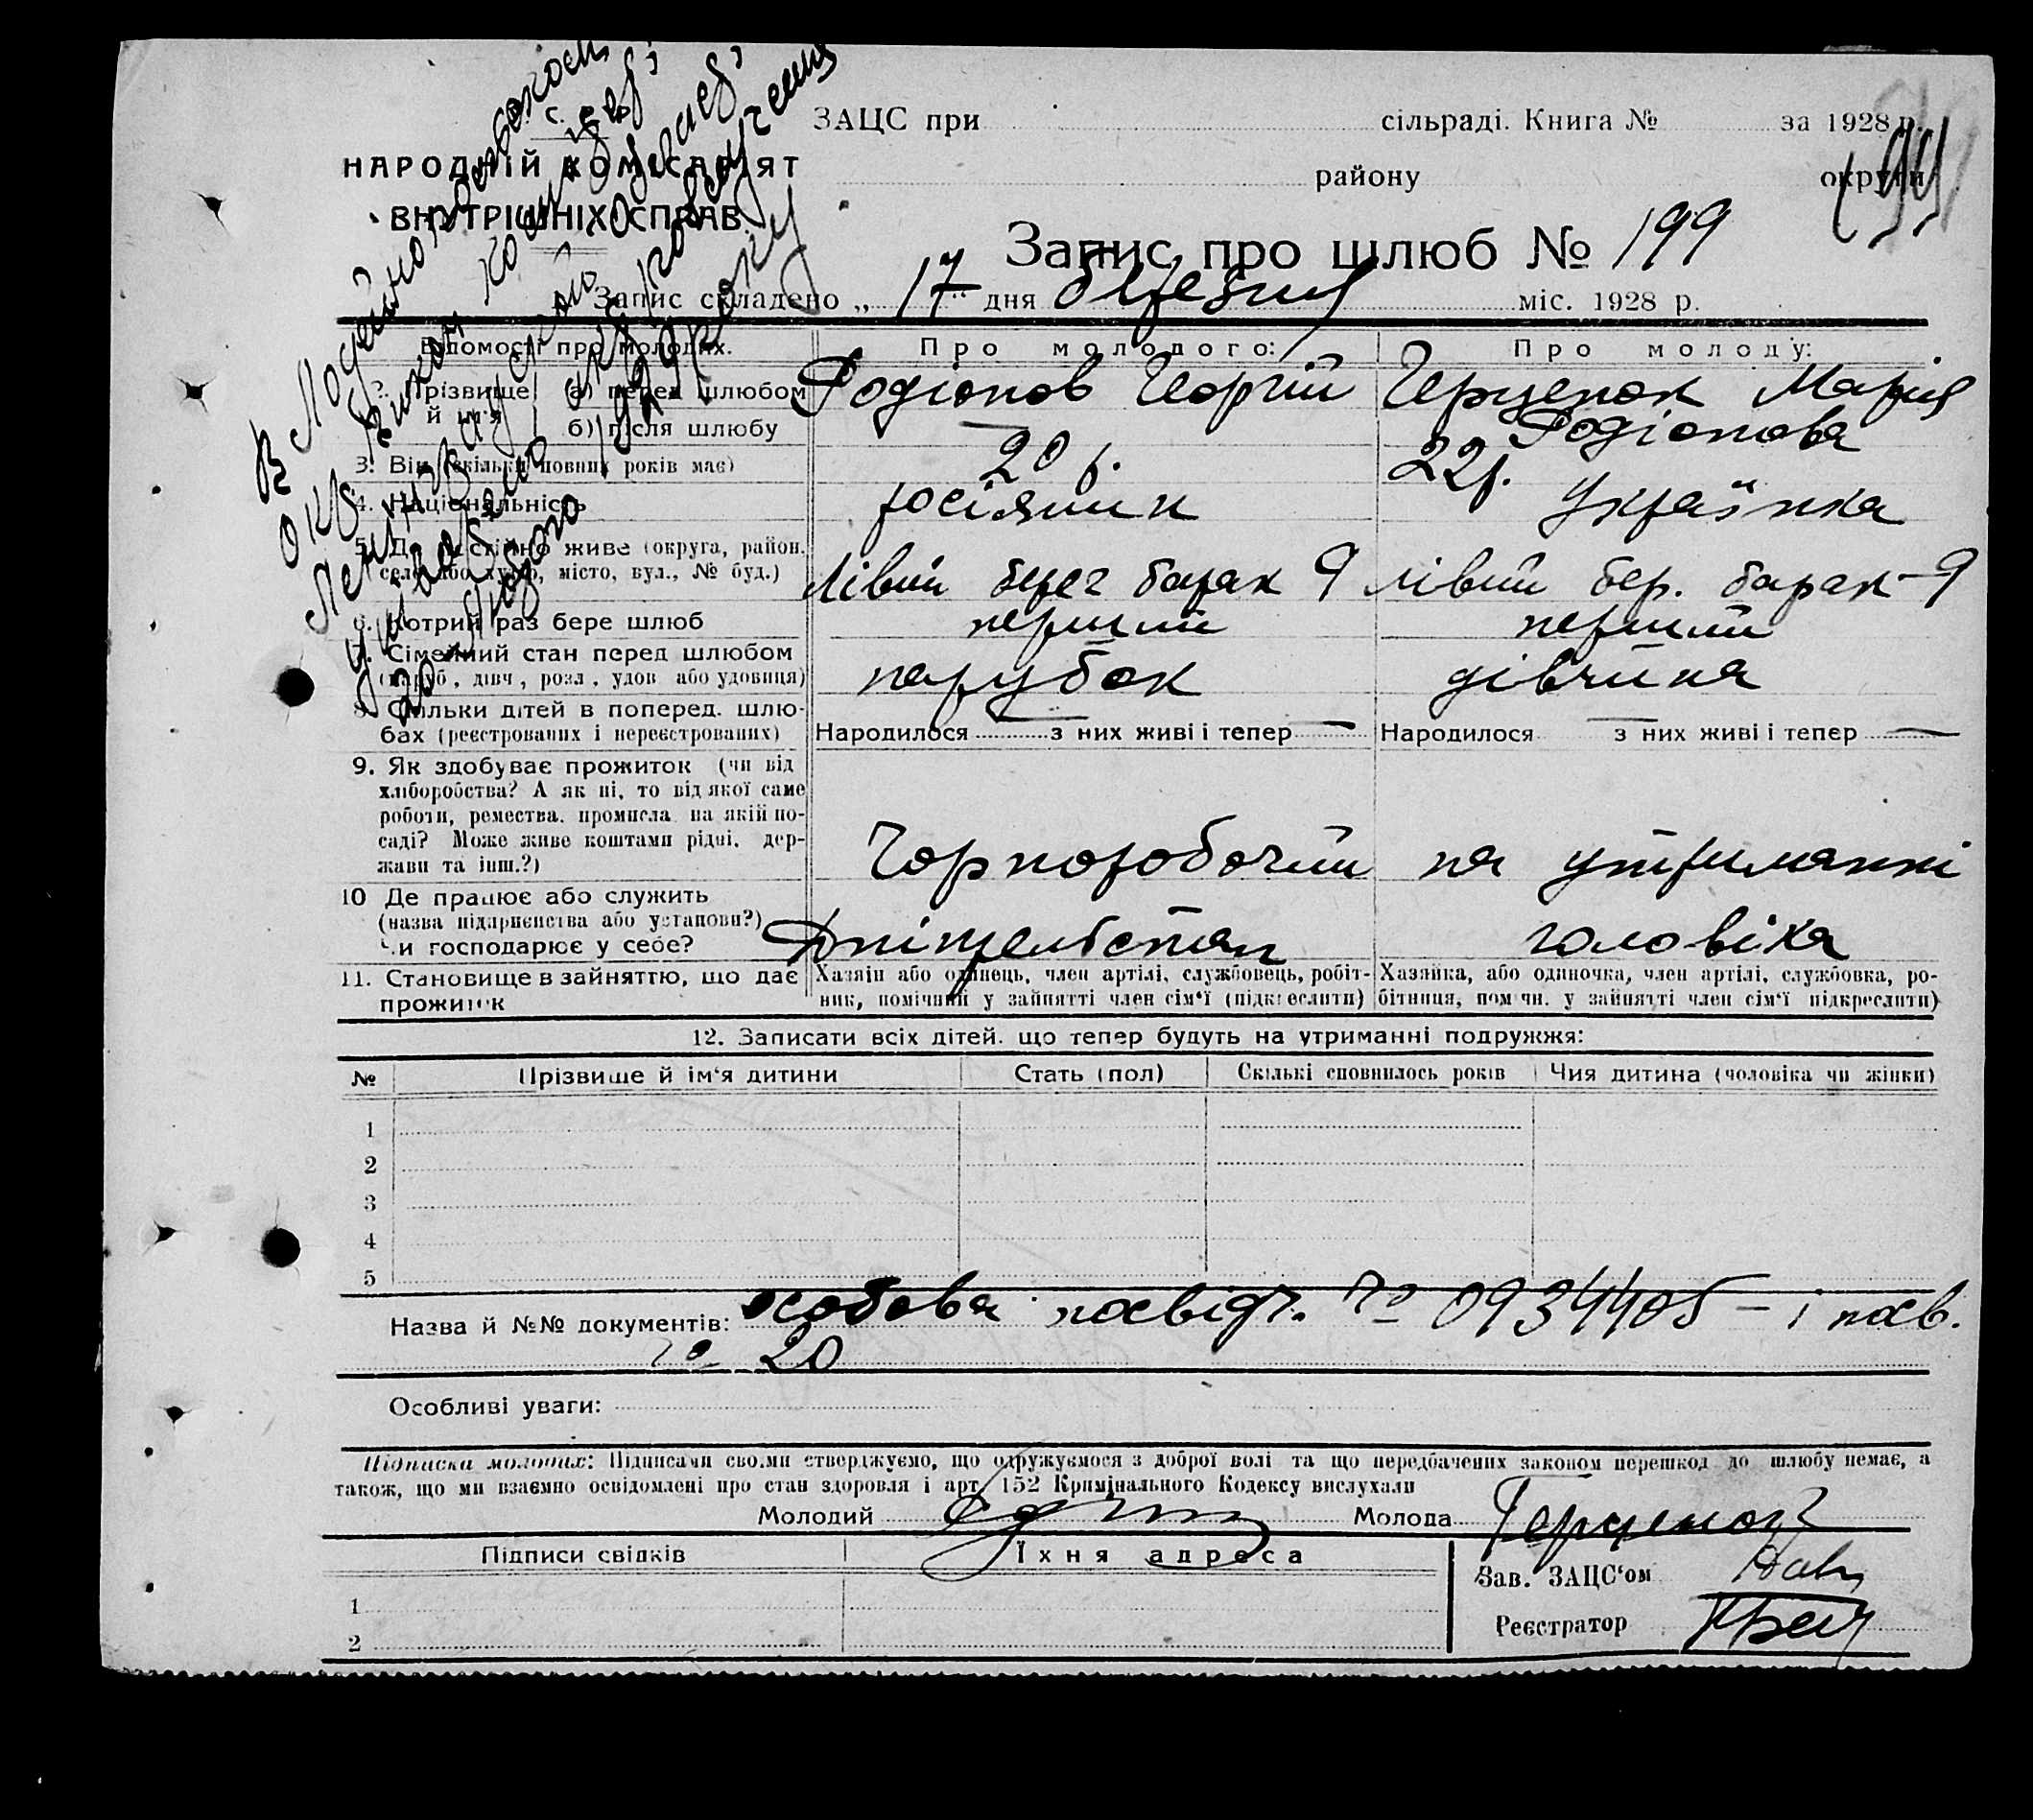 ЗАЦС при сільраді. Книга № за 1928 р.
району округи
НАРОДНІЙ КОМІСАРІЯТ
ВНУТРІШНІХ СПРАВ
Запис про шлюб № 199
Запис складено „17“ дня березня міс. 1928 р.
Відомості про молодих. Про молодого: Про молоду:
2. Прізвище й ім'я а) перед шлюбом Родіонов Георгій Герценок Марія
б) після шлюбу — Родіонова
3. Вік (скільки повних років має) 20 р. 22 р.
4. Національність росіянин Українка
5. Де постійно живе (округа, район,
село або хутір, місто, вул., № буд.) Лівий берег барак 9 лівий бер. барак – 9
6. Котрий раз бере шлюб перший перший
7. Сімейний стан перед шлюбом
(паруб., дівч., розл., удов. або удовиця) парубок дівчина
8. Скільки дітей в поперед. шлю-
бах (реєстрованих і нереєстрованих) Народилося — з них живі і тепер — Народилося — з них живі і тепер —
9. Як здобуває прожиток (чи від
хліборобства? А як ні, то від якої саме
роботи, ремества, промисла, на якій по-
саді? Може живе коштами рідні, дер-
жави та інш.?) Чорноробочий на утриманні
10 Де працює або служить
(назва підприємства або установи?)
Чи господарює у себе? Дніпрельстан чоловіка
11. Становище в зайняттю, що дає
прожиток
Хазяїн або одинець, член артілі, службовець, робіт-
ник, помічний у зайнятті член сім'ї (підкреслити)
Хазяйка, або одиночка, член артілі, службовка, ро-
бітниця, помічн. у зайнятті член сім'ї підкреслити)
12. Записати всіх дітей, що тепер будуть на утриманні подружжя:
№ Прізвише й ім'я дитини Стать (пол) Скількі сповнилось років Чия дитина (чоловіка чи жінки)
1
2
3
4
5
Назва й №№ документів: особова посвідч. № 0934405 – і посв.
№ 20
Особливі уваги:
Підписка молодих: Підписами своїми стверджуємо, що одружуємося з доброї волі та що передбачених законом перешкод до шлюбу немає, а
також, що ми взаємно освідомлені про стан здоровля і арт. 152 Кримінального Кодексу вислухали
Молодий Молода Герценок
Підписи свідків Їхня адреса
Зав. ЗАЦС'ом
Реєстратор
1
2